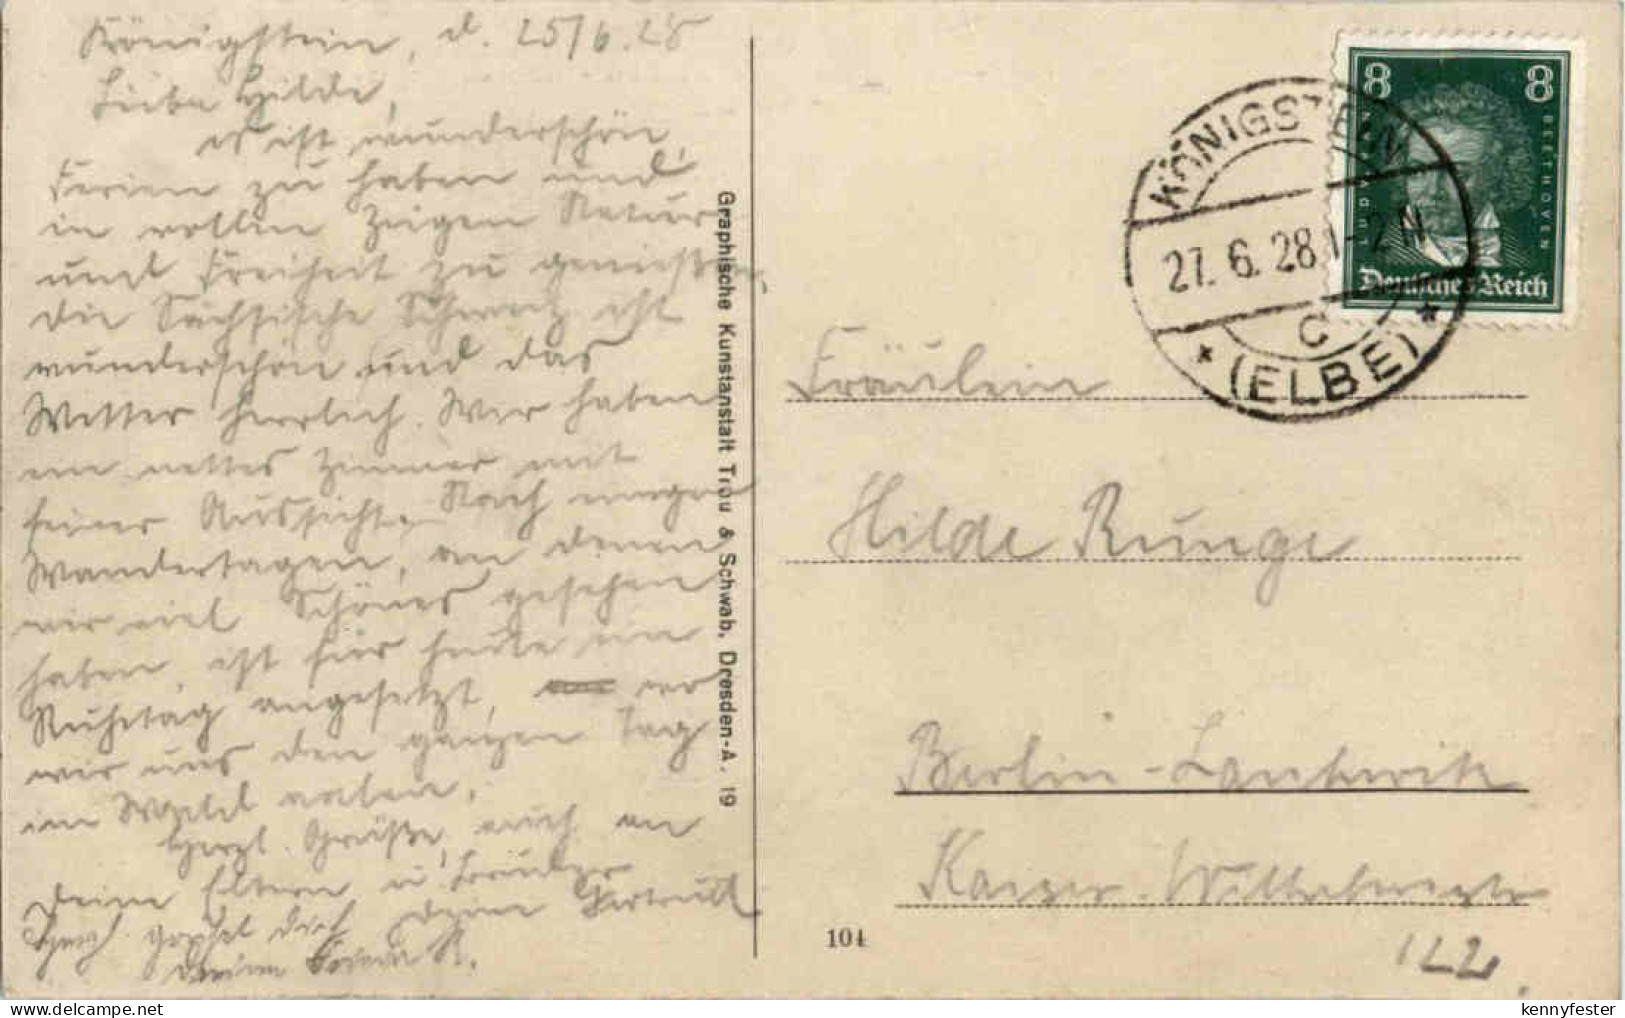 Königstein, d. 25/6.28
Liebe Hilde,
es ist wunderschön,
Ferien zu haben und
in vollen Zügen Natur
und Freiheit zu genießen,
die Sächsische Schweiz ist
wunderschön und das
Wetter herrlich. Wir haben
ein nettes Zimmer mit
feiner Aussicht. Nach einigen
Wandertagen, an denen
wir viel Schönes gesehen
haben, ist für heute ein
Ruhetag angesetzt, wo
wir uns den ganzen Tag
im Wald aalen.
Herzl. Grüße, auch an
Deine Eltern u. Bruder
Deine Gertrud
Herzl. grüßt Dich
Deine R.
Graphische Kunstanstalt Trau & Schwab, Dresden-A. 19
8 8
LUDWIG VAN BEETHOVEN
Deutsches Reich
KÖNIGSTEIN
27. 6. 28 1-2 N
C
* (ELBE) *
Fräulein
Hilde Runge
Berlin-Lankwitz
Kaiser-Wilhelmstr
122
104
kennyfester